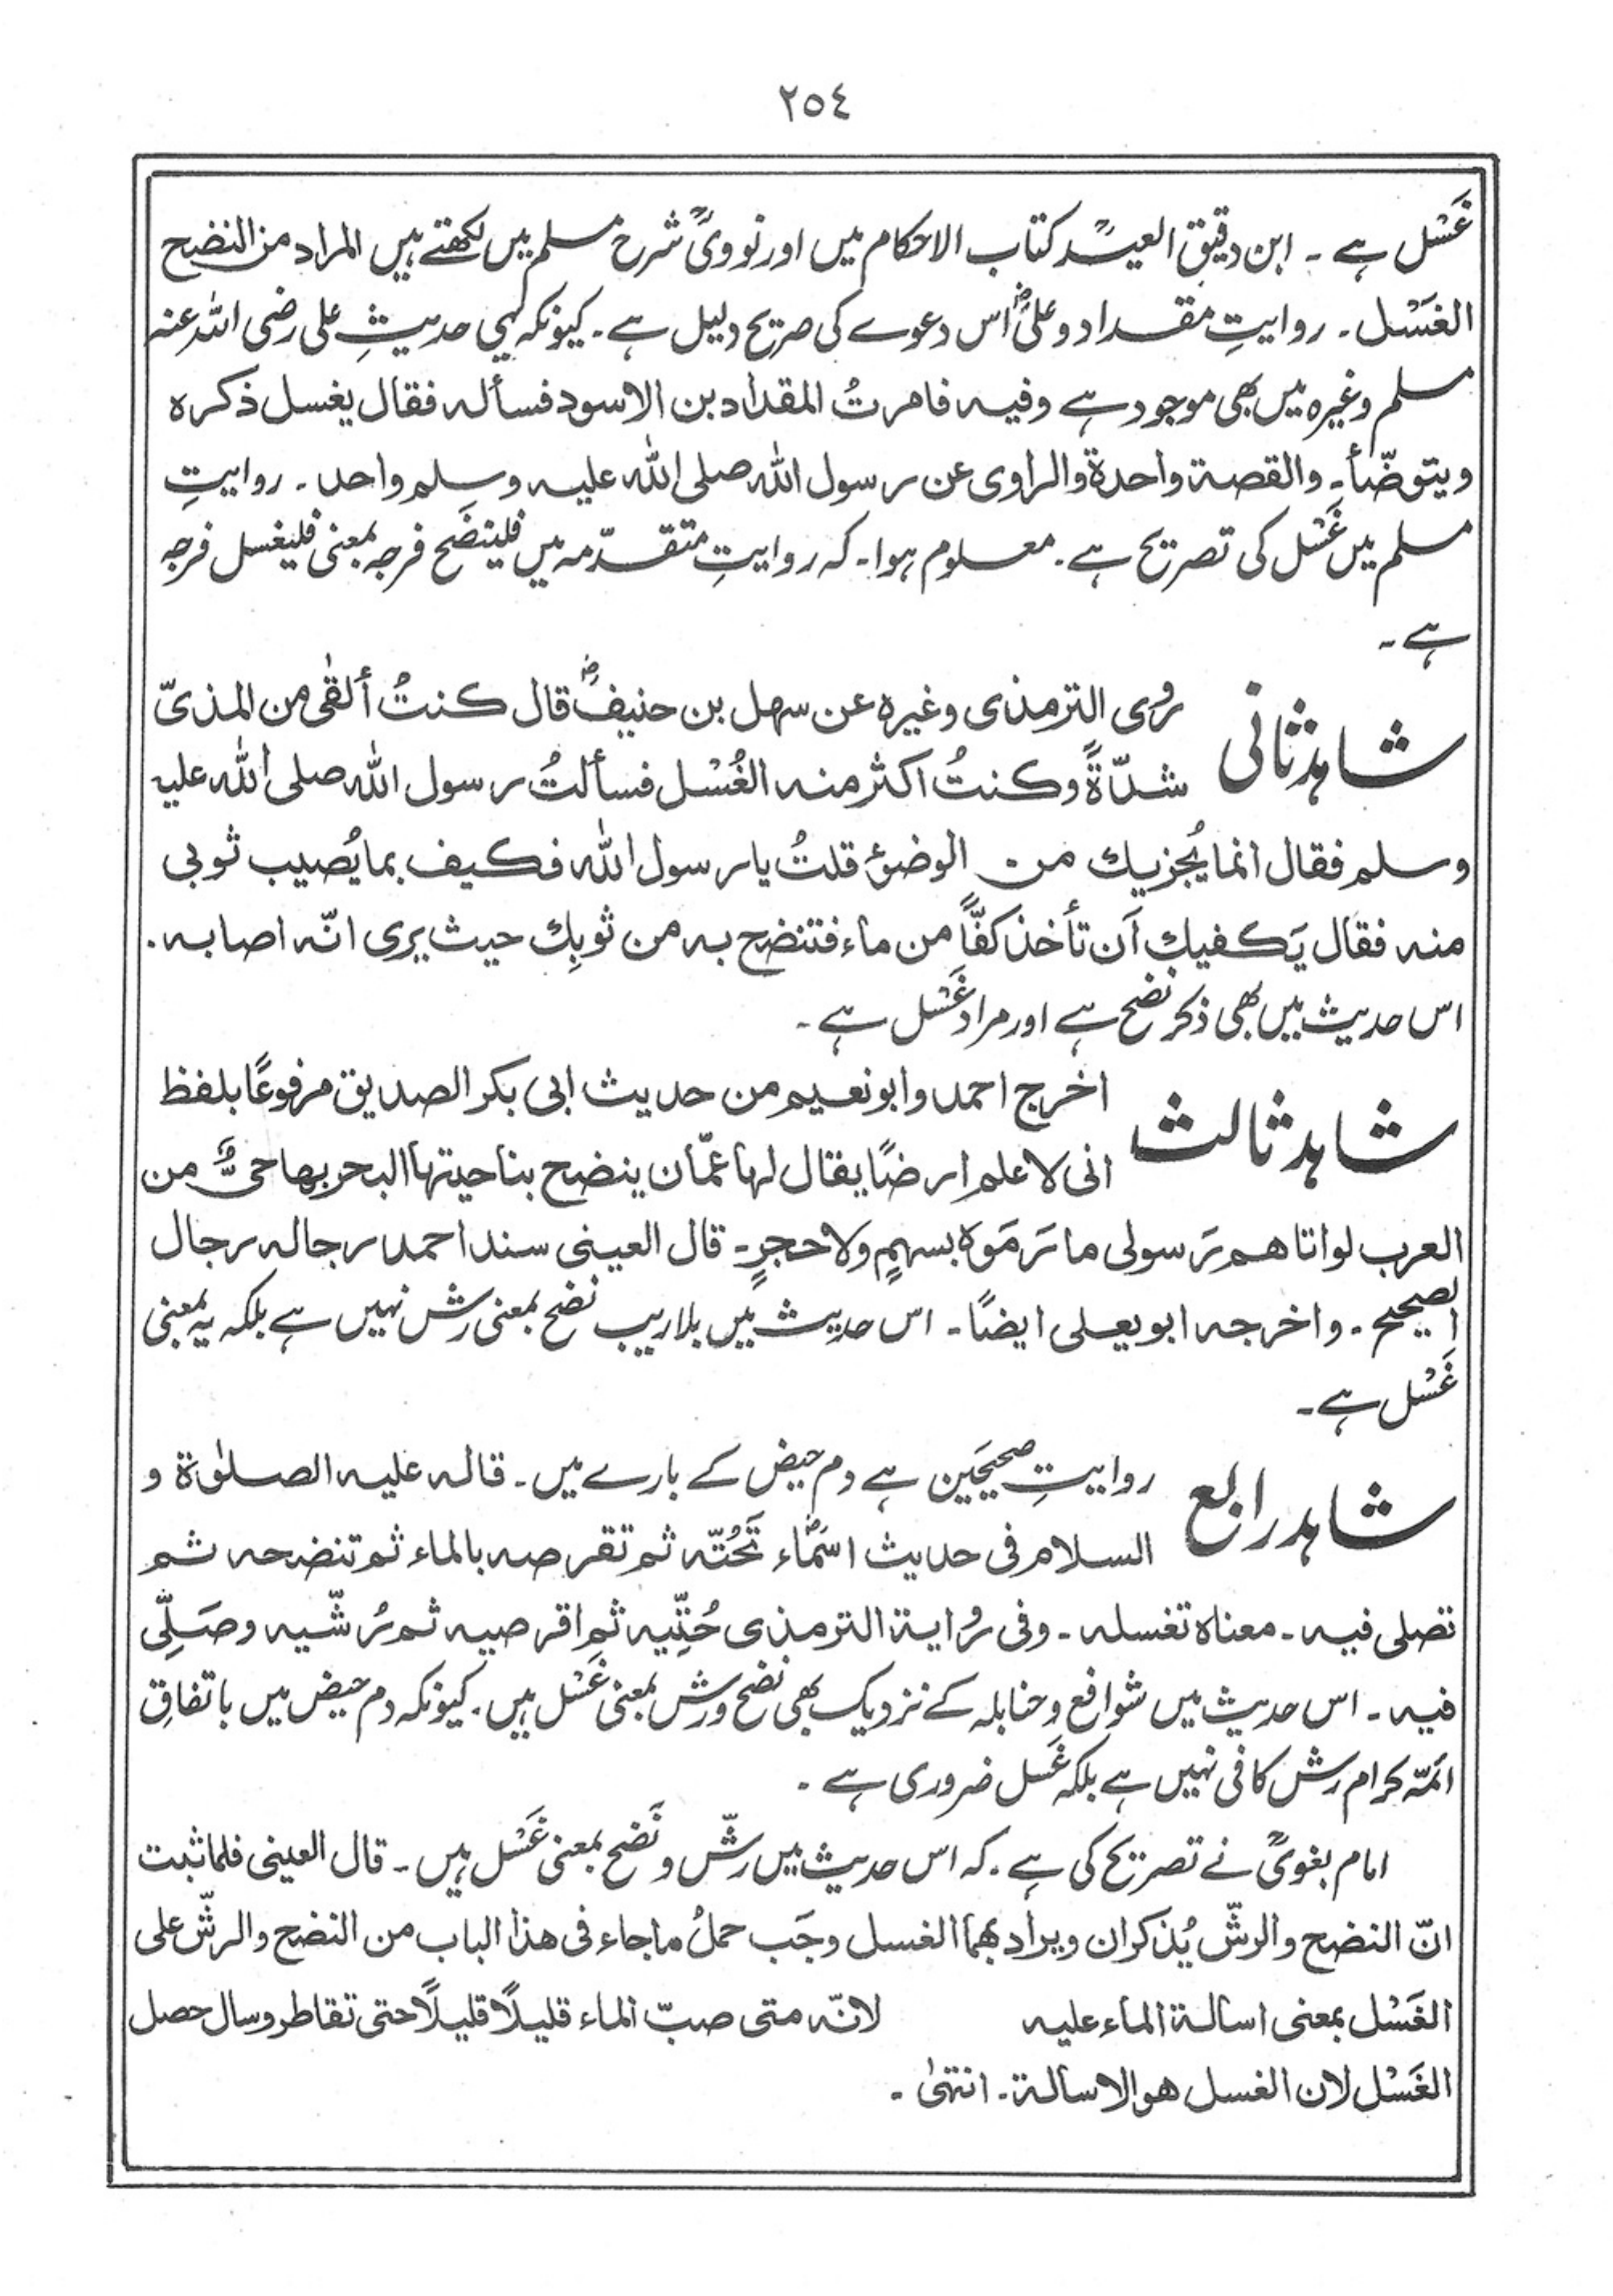 ٢٥٤
غَسْل ہے ۔ ابن دقیق العیدؒ کتاب الاحکام میں اور نوویؒ شرح مسلم میں لکھتے ہیں المراد من النضح
الغَسْل ۔ روایتِ مقداد و علیؓ اس دعوے کی صریح دلیل ہے ۔ کیونکہ یہی حدیثِ علی رضی اللہ عنہ
مسلم وغیرہ میں بھی موجود ہے وفیہ فامرتُ المقداد بن الاسود فسألہ فقال یغسل ذکرہ
ویتوضّأ ۔ والقصۃ واحدۃ والراوی عن رسول اللہ صلی اللہ علیہ وسلم واحد ۔ روایتِ
مسلم میں غَسْل کی تصریح ہے ۔ معلوم ہوا ۔ کہ روایتِ متقدّمہ میں فلینضَح فرجہ بمعنی فلیغسل فرجہ
ہے ۔
شاہد ثانی رُوی الترمذی وغیرہ عن سھل بن حنیفؓ قال کنتُ ألقٰی من المذیّ
شدّۃً وکنتُ اکثر منہ الغُسْل فسألتُ رسول اللہ صلی اللہ علیہ
وسلم فقال انما یُجزیك من الوضؤ قلتُ یا رسول اللہ فکیف بما یُصیب ثوبی
منہ فقال یَکفیك اَن تأخذ کفًّا من ماء فتنضح بہ من ثوبِك حیث یری انّہ اصابہ ۔
اس حدیث میں بھی ذکرِ نضح ہے اور مراد غَسْل ہے ۔
شاہد ثالث اخرج احمد وابونعیم من حدیث ابی بکر الصدیق مرفوعًا بلفظ
انی لا علم ارضًا یقال لہا عمّان ینضح بناحیتہا البحر بھا حیٌّ من
العرب لو اتاھم رَسولی ما رَمَوہ بسھمٍ ولا حجرٍ ۔ قال العینی سند احمد رجالہ رجال
الصحیح ۔ واخرجہ ابویعلی ایضًا ۔ اس حدیث میں بلاریب نضح بمعنی رش نہیں ہے بلکہ یہ بمعنی
غَسْل ہے ۔
شاہد رابع روایتِ صحیحَین ہے دم حیض کے بارے میں ۔ قالہ علیہ الصلٰوۃ و
السلام فی حدیث اسمَاءؓ تَحُتّہ ثم تقرصہ بالماء ثم تنضحہ ثم
تصلی فیہ ۔ معناہ تغسلہ ۔ وفی رُوایۃ الترمذی حُتِّیہ ثم اقرصیہ ثم رُشّیہ وصَلِّی
فیہ ۔ اس حدیث میں شوافع و حنابلہ کے نزدیک بھی نضح و رش بمعنی غَسْل ہیں ۔ کیونکہ دم حیض میں باتفاقِ
ائمّہ کرام رش کافی نہیں ہے بلکہ غَسل ضروری ہے ۔
امام بغویؒ نے تصریح کی ہے ۔ کہ اس حدیث میں رشّ و نَضح بمعنی غَسْل ہیں ۔ قال العینی فلما ثبت
انّ النضح والرشّ یُذکران ویراد بھما الغسل وجَب حملُ ما جاء فی ھذا الباب من النضح والرشّ علی
الغَسْل بمعنی اسالۃ الماء علیہ لانّہ متی صبّ الماء قلیلًا قلیلًا حتی تقاطر وسال حصل
الغَسْل لان الغسل ھو الاسالۃ ۔ انتہیٰ ۔